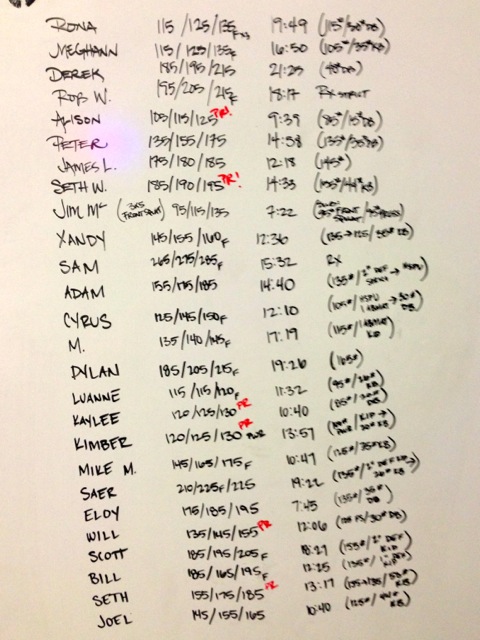 RONA 115/125/135Fx3 19:49 (115#/30#DB)
MEGHANN 115/125/135F 16:50 (105#/35#KB)
DEREK 185/195/215 21:25 (40#DB)
ROB W. 195/205/215F 18:17
ALISON 105/115/125 PR! 9:39 (85#/15#DB)
PETER 135/155/175 14:58
JAMES L. 175/180/185 12:18 (145#)
SETH W. 185/190/195 PR! 14:33
JIM Mc (3X5 FRONT SQUAT) 95/115/135 7:22
XANDY 145/155/160F 12:36 (135→125/35# KB)
SAM 265/275/285F 15:32 RX
ADAM 155/175/185 14:40 (135#/2" DEF → HSPU)
CYRUS 125/145/150F 12:10 (105#/HSPU 1 ABMAT/30# DB)
M. 135/140/145F 17:19 (115#/1 ABMAT KIP)
DYLAN 185/205/215F 19:26 (165#)
LUANNE 115/115/120F 11:32
KAYLEE 120/125/130 PR 10:40
KIMBER 120/125/130 PR PWR 13:57
MIKE M. 145/165/175F 10:47 (125#/35#KB)
SAER 210/225F/225 19:22
ELOY 175/185/195 7:45 (135#/35# DB)
WILL 135/145/155 PR 12:06
SCOTT 185/195/205F 18:27 (155#/2" DEF KIP)
BILL 185/165/195F 12:25
SETH 155/175/185 PR 13:17
JOEL 145/155/165 10:40